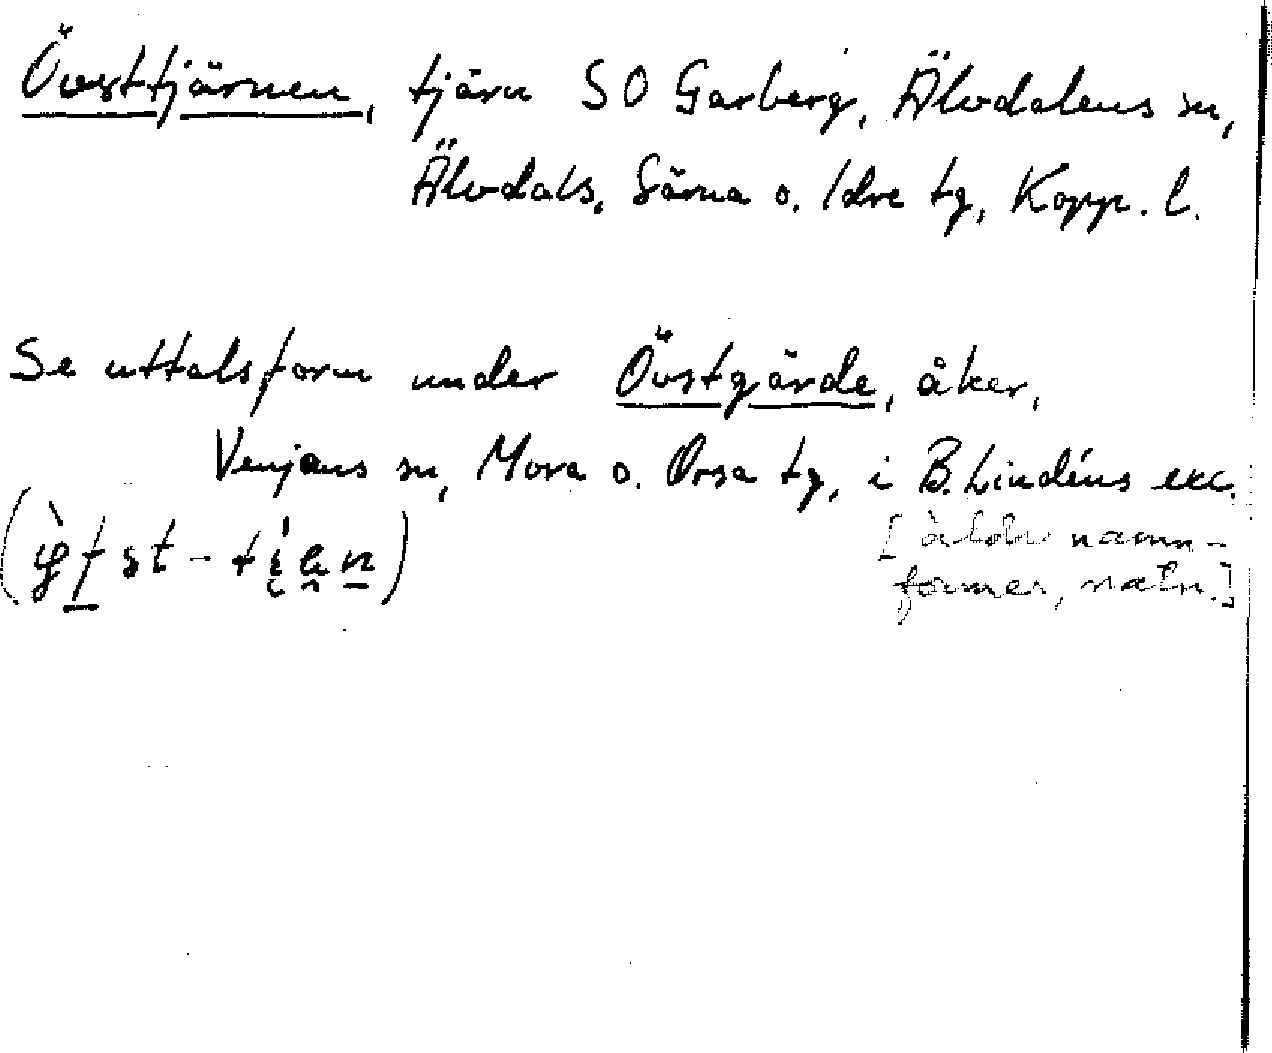 Övsttjärnen, tjärn SO Garberg, Älvdalens sn,
Älvdals, Särna o. Idre tg, Kopp. l.
Se uttalsform under Övstgärde, åker,
Venjans sn, Mora o. Orsa tg, i B. Lindéns exc.
[äldre namn-
former, natn.]